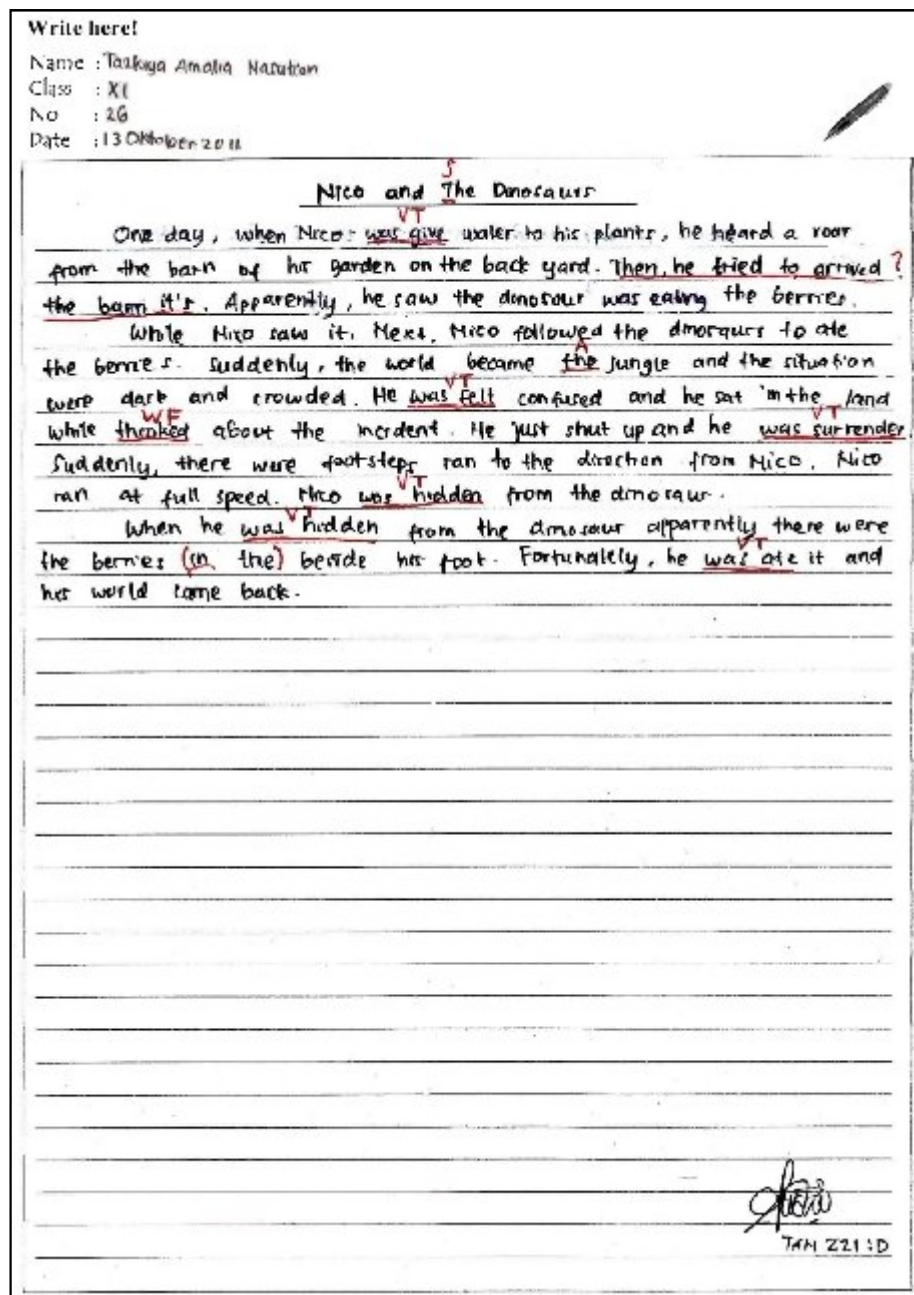 Write here!
Name : Tazkiya Amalia Nasution
Class : XI
No : 26
Date : 13 Oktober 2011
S
Nico and The Dinosaurs
VT
One day, when Nico was give water to his plants, he heard a roar
from the barn of his garden on the back yard. Then, he tried to arrived ?
the barn it's. Apparently, he saw the dinosaur was eating the berries.
While Nico saw it. Next, Nico followed the dinosaurs to ate
A
the berries. Suddenly, the world became the jungle and the situation
VT
were dark and crowded. He was felt confused and he sat in the land
WF VT
while thinked about the incident. He just shut up and he was surrender
Suddenly, there were footsteps ran to the direction from Nico. Nico
VT
ran at full speed. Nico was hidden from the dinosaur.
VT
When he was hidden from the dinosaur apparently there were
VT
the berries (in the) beside his foot. Fortunatelly, he was ate it and
his world come back.
TAN 221 :D